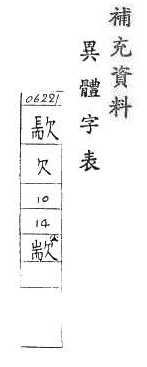 補充資料
異體字表
06221
欠
10
14
歂